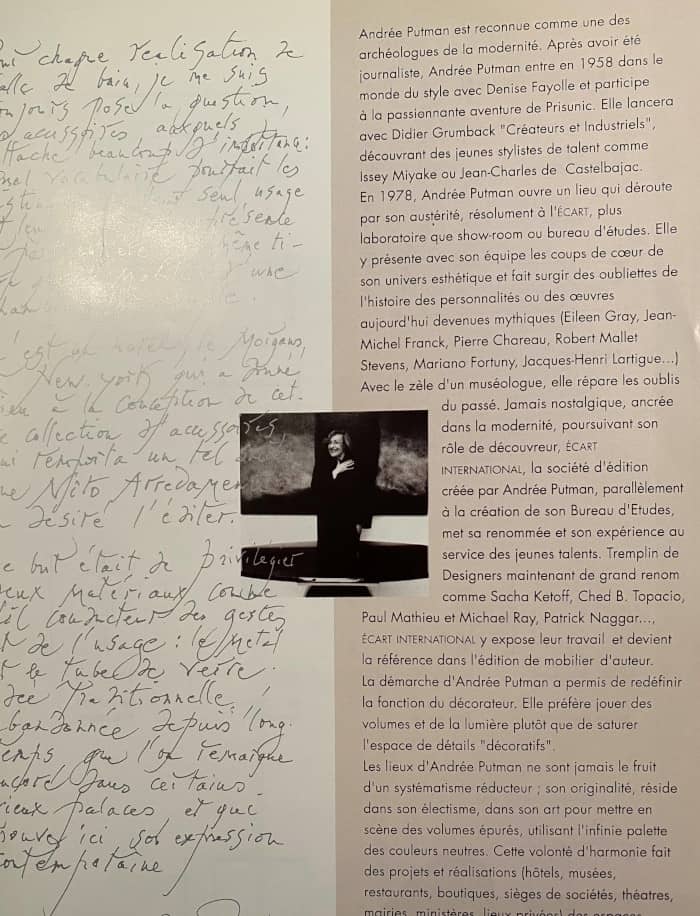 chaque réalisation de
salle de bain, je me suis
toujours posé la question,
accessoires auxquels
attache beaucoup d'importance:
vocabulaire pourrait les
seul usage
même ti-
d'une
est un hotel, le Morgans,
New-York qui a donné
lieu à la conception de cet-
te collection d'accessoires,
qui remporta un tel
que Mito Arredamen
désiré l'éditer.
Le but était de privilégier
deux matériaux comme
fil conducteur des gestes
et de l'usage : le métal
et le tube de verre.
Idée traditionnelle,
abandonnée depuis long-
temps que l'on remarque
encore dans certains
vieux palaces et que
trouve ici son expression
contemporaine
Andrée Putman est reconnue comme une des
archéologues de la modernité. Après avoir été
journaliste, Andrée Putman entre en 1958 dans le
monde du style avec Denise Fayolle et participe
à la passionnante aventure de Prisunic. Elle lancera
avec Didier Grumback "Créateurs et Industriels",
découvrant des jeunes stylistes de talent comme
Issey Miyake ou Jean-Charles de Castelbajac.
En 1978, Andrée Putman ouvre un lieu qui déroute
par son austérité, résolument à l'ÉCART, plus
laboratoire que show-room ou bureau d'études. Elle
y présente avec son équipe les coups de cœur de
son univers esthétique et fait surgir des oubliettes de
l'histoire des personnalités ou des œuvres
aujourd'hui devenues mythiques (Eileen Gray, Jean-
Michel Franck, Pierre Chareau, Robert Mallet
Stevens, Mariano Fortuny, Jacques-Henri Lartigue...)
Avec le zèle d'un muséologue, elle répare les oublis
du passé. Jamais nostalgique, ancrée
dans la modernité, poursuivant son
rôle de découvreur, ÉCART
INTERNATIONAL, la société d'édition
créée par Andrée Putman, parallèlement
à la création de son Bureau d'Etudes,
met sa renommée et son expérience au
service des jeunes talents. Tremplin de
Designers maintenant de grand renom
comme Sacha Ketoff, Ched B. Topacio,
Paul Mathieu et Michael Ray, Patrick Naggar...,
ÉCART INTERNATIONAL y expose leur travail et devient
la référence dans l'édition de mobilier d'auteur.
La démarche d'Andrée Putman a permis de redéfinir
la fonction du décorateur. Elle préfère jouer des
volumes et de la lumière plutôt que de saturer
l'espace de détails "décoratifs".
Les lieux d'Andrée Putman ne sont jamais le fruit
d'un systématisme réducteur ; son originalité, réside
dans son électisme, dans son art pour mettre en
scène des volumes épurés, utilisant l'infinie palette
des couleurs neutres. Cette volonté d'harmonie fait
des projets et réalisations (hôtels, musées,
restaurants, boutiques, sièges de sociétés, théatres,
mairies, ministères, lieux privés) des espaces